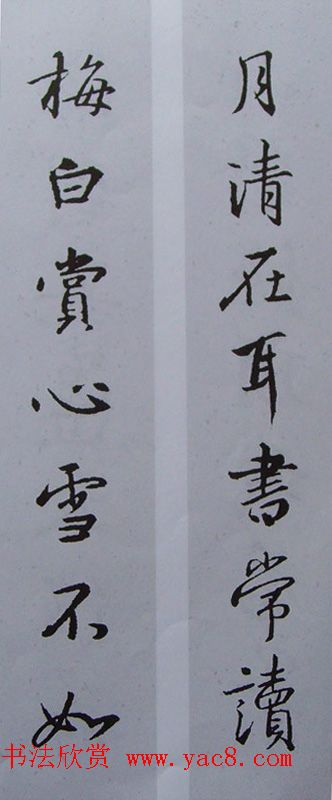 月清在耳書常讀
梅白賞心雪不如
书法欣赏 www.yac8.com